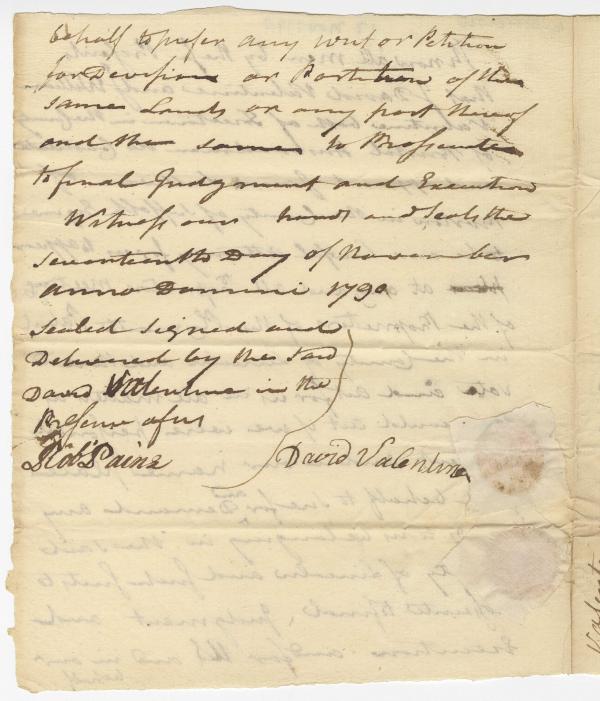 behalf to prefer any writ or Petition
for Devision or Partition of the
same Lands or any part thereof
and the same to Prossecute
to final Judgment and Execution
Witness our hands and Seals the
seventeenth Day of November
anno Domini 1790
Sealed Signed and
Delivered by the said
David Valentine in the
Presence of us
Robt Paine
David Valentine